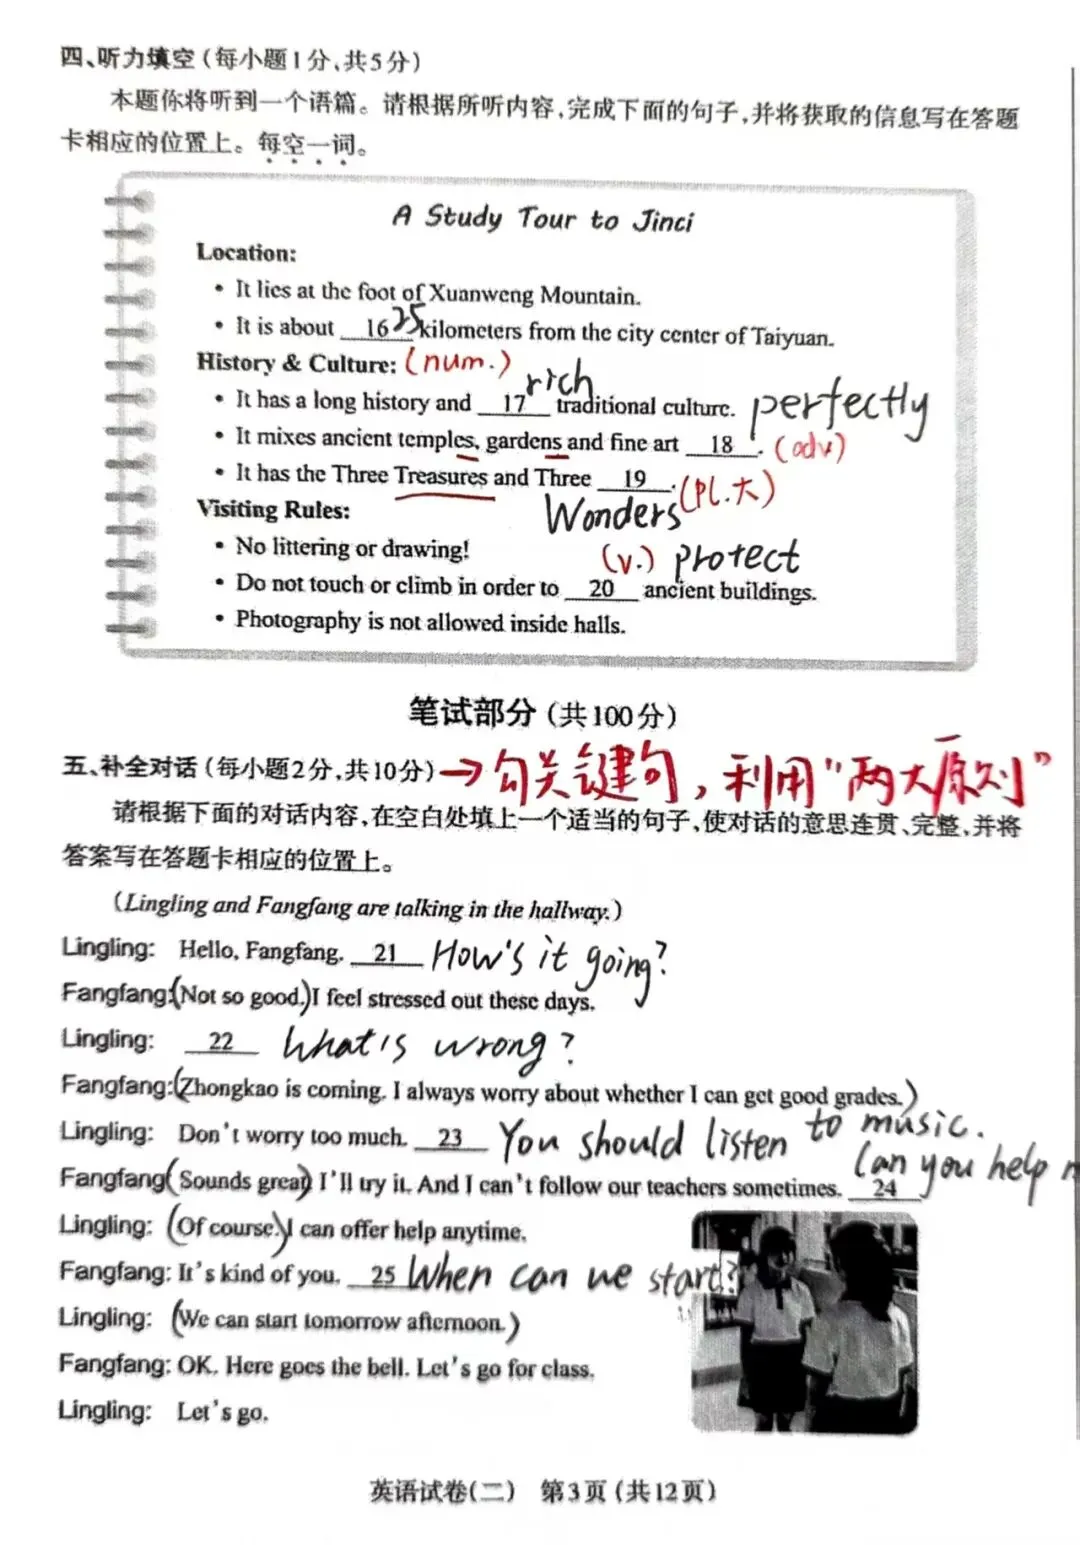 四、听力填空(每小题1分,共5分)
本题你将听到一个语篇。请根据所听内容,完成下面的句子,并将获取的信息写在答题
卡相应的位置上。每空一词。
A Study Tour to Jinci
Location:
• It lies at the foot of Xuanweng Mountain.
• It is about 16 25 kilometers from the city center of Taiyuan.
History & Culture: (num.)
• It has a long history and 17 rich traditional culture.
perfectly
• It mixes ancient temples, gardens and fine art 18. (adv)
• It has the Three Treasures and Three 19. (pl.大)
Wonders
Visiting Rules:
• No littering or drawing!
(v.) protect
• Do not touch or climb in order to 20 ancient buildings.
• Photography is not allowed inside halls.
笔试部分(共100分)
五、补全对话(每小题2分,共10分)→勾关键句,利用"两大原则"
请根据下面的对话内容,在空白处填上一个适当的句子,使对话的意思连贯、完整,并将
答案写在答题卡相应的位置上。
(Lingling and Fangfang are talking in the hallway.)
Lingling: Hello, Fangfang. 21 How's it going?
Fangfang:(Not so good.)I feel stressed out these days.
Lingling: 22 What's wrong?
Fangfang:(Zhongkao is coming. I always worry about whether I can get good grades.)
Lingling: Don't worry too much. 23 You should listen to music.
Can you help
Fangfang(Sounds great) I'll try it. And I can't follow our teachers sometimes. 24
Lingling: (Of course.)I can offer help anytime.
Fangfang: It's kind of you. 25 When can we start?
Lingling: (We can start tomorrow afternoon.)
Fangfang: OK. Here goes the bell. Let's go for class.
Lingling: Let's go.
英语试卷(二) 第3页(共12页)